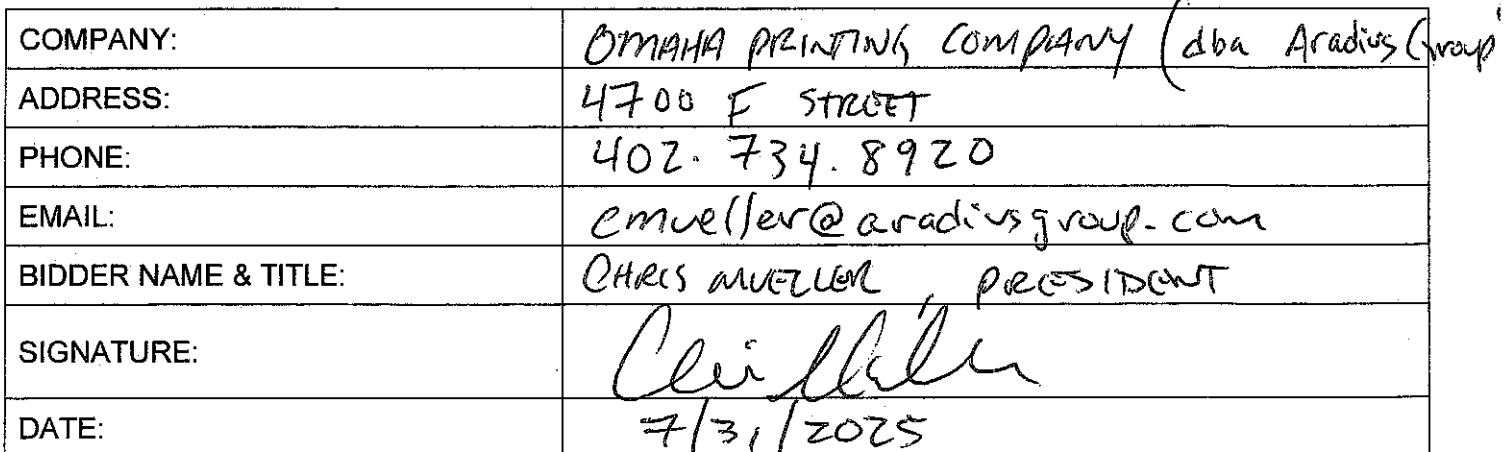 COMPANY: OMAHA PRINTING COMPANY (dba Aradius Group)
ADDRESS: 4700 F STREET
PHONE: 402. 734. 8920
EMAIL: cmueller@aradiusgroup.com
BIDDER NAME & TITLE: CHRIS MUELLER, PRESIDENT
SIGNATURE:
DATE: 7/31/2025